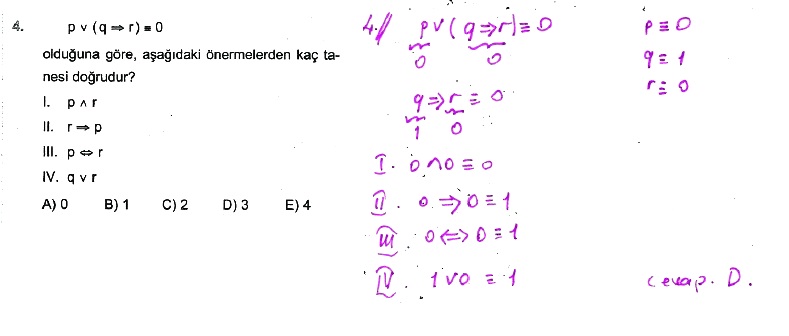 4. p v (q ⇒ r) ≡ 0
olduğuna göre, aşağıdaki önermelerden kaç ta-
nesi doğrudur?
I. p ∧ r
II. r ⇒ p
III. p ⇔ r
IV. q v r
A) 0 B) 1 C) 2 D) 3 E) 4
4.) p v (q ⇒ r) ≡ 0
0 0
q ⇒ r ≡ 0
1 0
I. 0 ∧ 0 ≡ 0
II. 0 ⇒ 0 ≡ 1
III. 0 ⇔ 0 ≡ 1
IV. 1 v 0 ≡ 1
p ≡ 0
q ≡ 1
r ≡ 0
cevap. D.